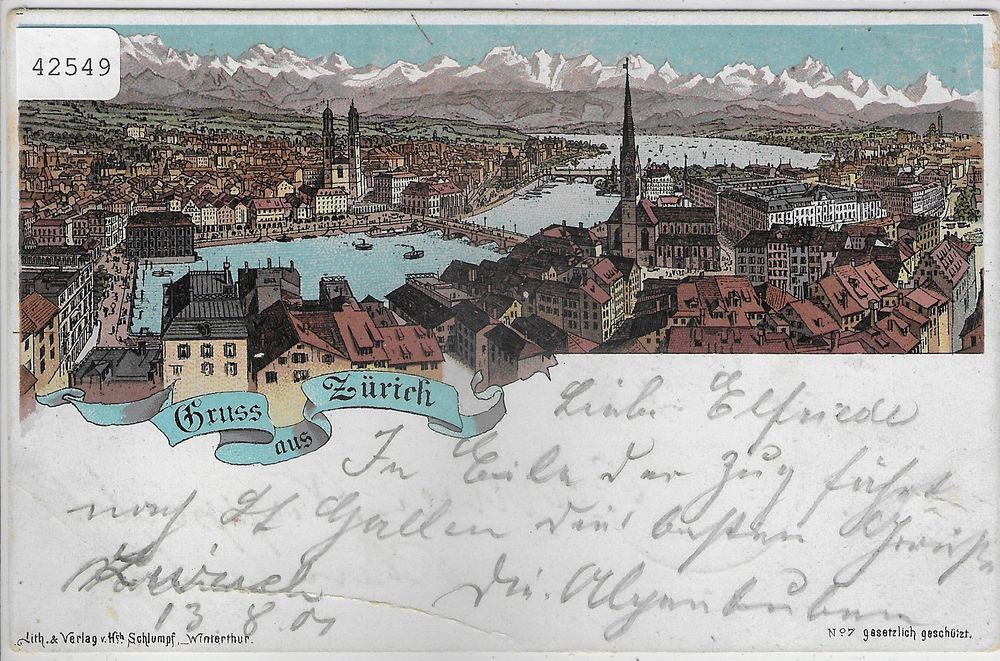 42549
Gruss
aus
Zürich
Liebe Elfriede
In Eile der Zug führt
nach St Gallen die besten Grüsse
Zürich die Alpenbuben
13 8. 01
Lith. & Verlag v. Hch Schlumpf, Winterthur.
No 7 gesetzlich geschützt.